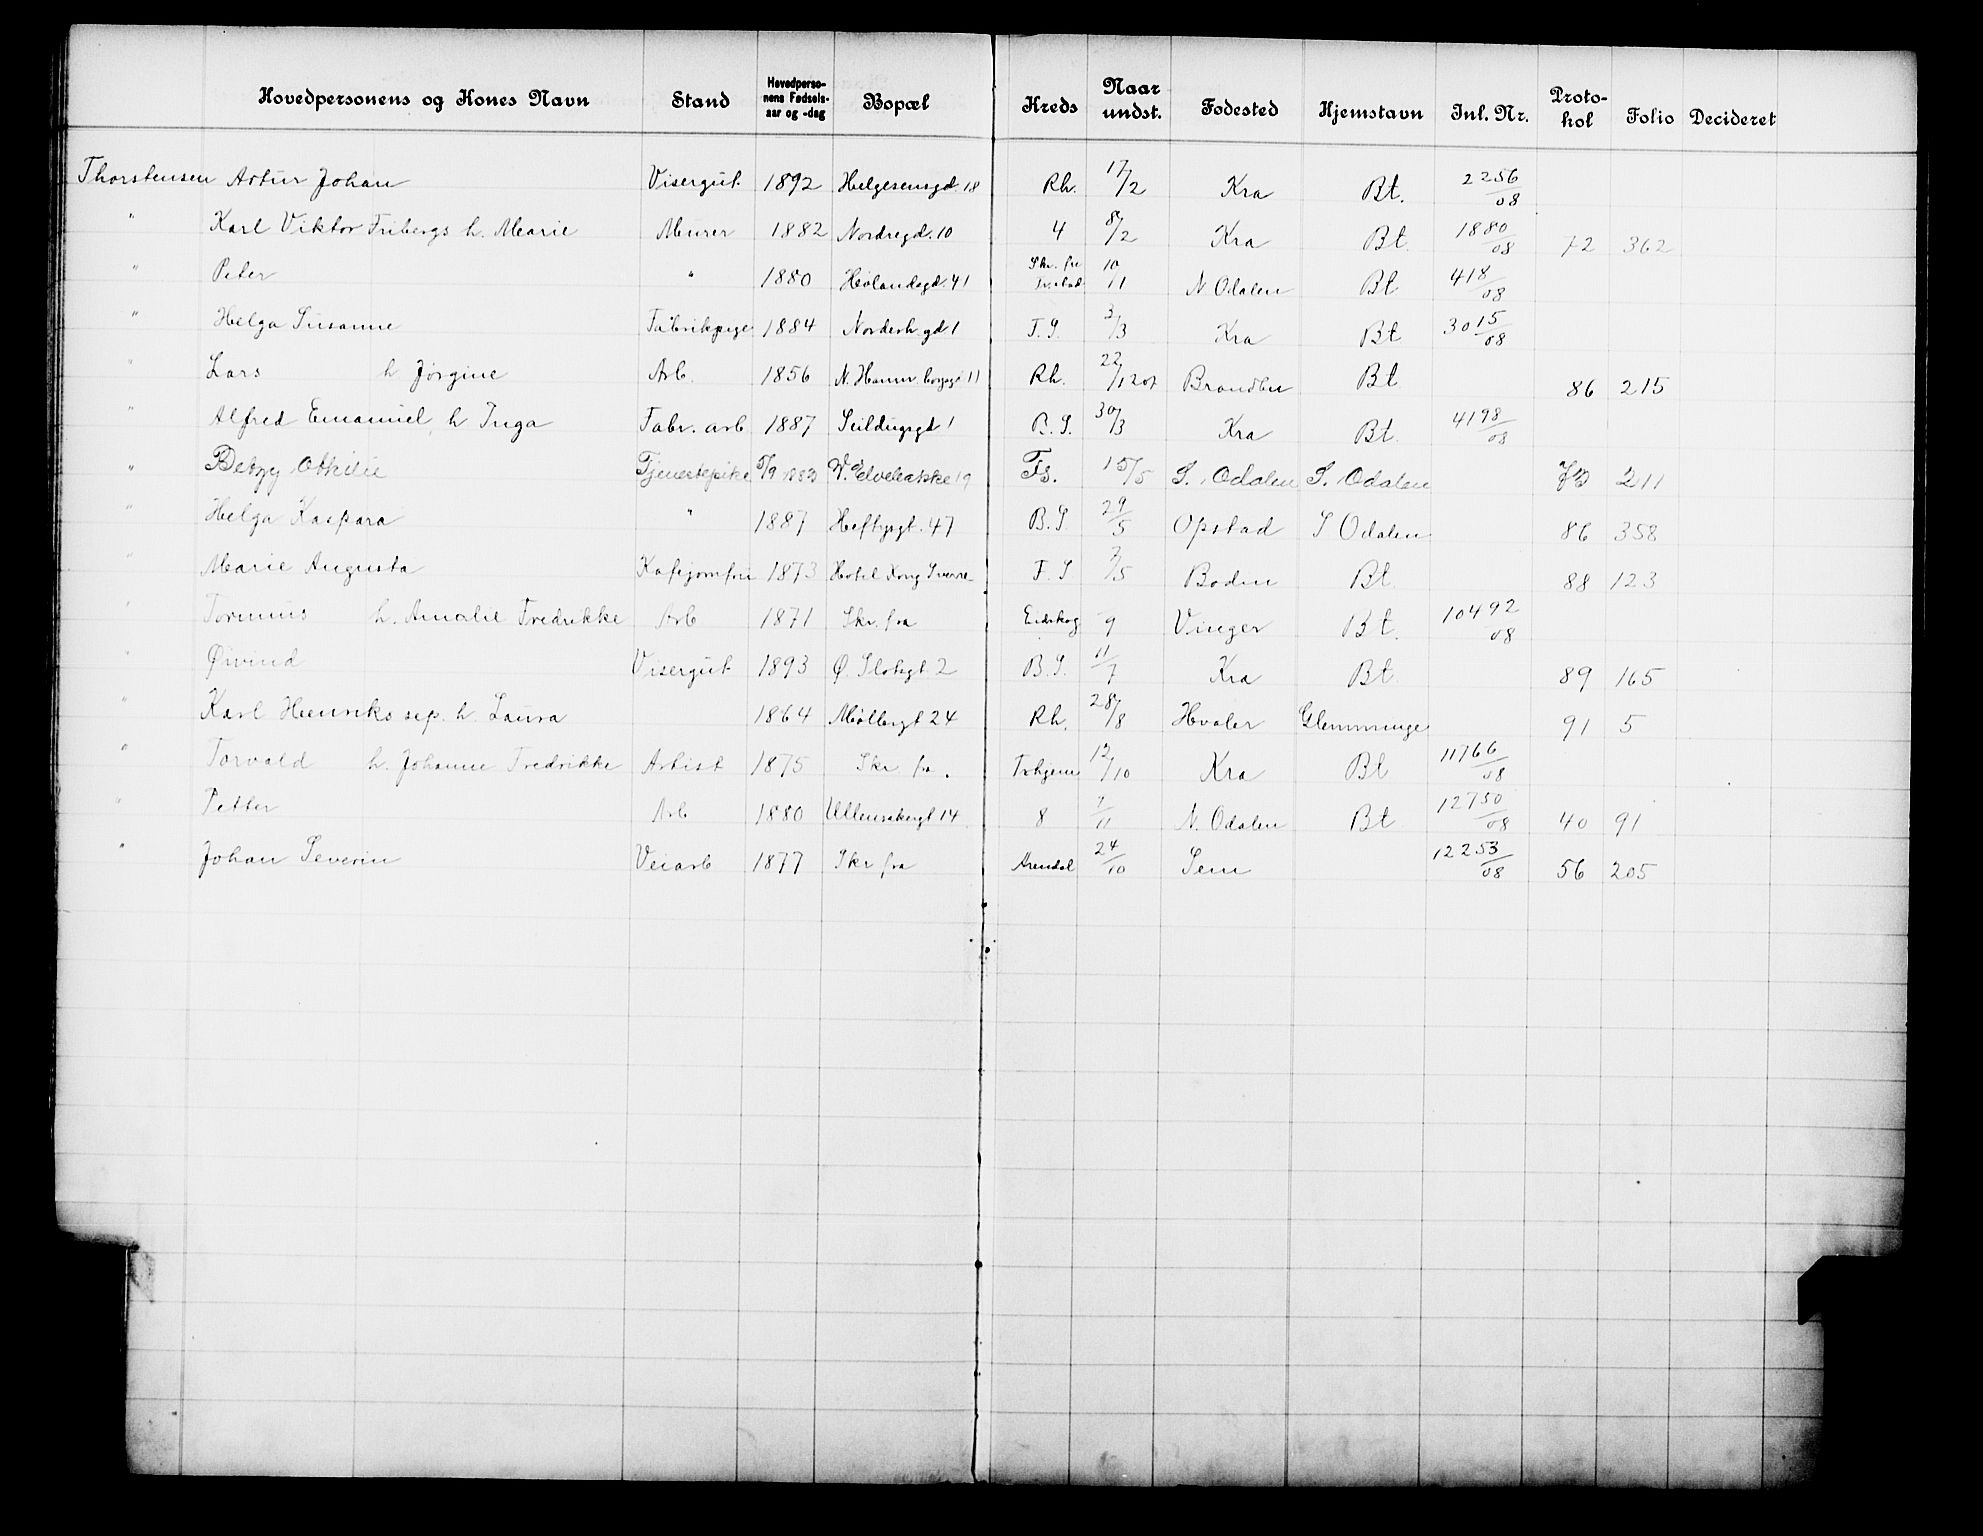 Hovedpersonens og Kones Navn | Stand | Hovedpersonens Fødselsaar og -dag | Bopæl | Kreds | Naar undst. | Fødested | Hjemstavn | Inl. Nr. | Protokol | Folio | Decideret
Thorstensen Artur Johan | Visergut | 1892 | Helgesensgd. 18 | Rh. | 17/2 | Kra | Bt. | 2256/08
" Karl Viktor Fribergs h. Marie | Murer | 1882 | Nordregd. 10 | 4 | 8/2 | Kra | Bt. | 1880/08 | 72 | 362
" Peter | " | 1880 | Hølandsgd. 41 | Skr. fra | 10/1 | N. Odalen | Bt | 418/08
" Helga Susanne | Fabrikpige | 1884 | Norderh.gd 1 | F.S. | 3/3 | Kra | Bt | 3015/08
" Lars h Jørgine | Arb. | 1856 | N. Hamm. borggt 11 | Rh. | 22/12 07 | Brandbu | Bt | 86 | 215
" Alfred Emanuel h Inga | Fabr. arb | 1887 | Seildugsgd 1 | B.S. | 30/3 | Kra | Bt. | 4198/08
" Betzy Othilie | Tjenestepike | 5/9 1883 | V. Elvebakke 19 | Fs. | 15/5 | S. Odalen | S. Odalen | 211
" Helga Kaspara | " | 1887 | Heftyegt. 47 | B.S. | 29/5 | Opstad | S Odalen | 86 | 358
" Marie Augusta | Kafejomfru | 1873 | Hotel Kong Sverre | F.S | 7/5 | Boden | Bt. | 88 | 123
" Tormus h. Amalie Fredrikke | Arb | 1871 | Skr. fra | Eidskog | 9 | Vinger | Bt. | 10492/08
" Øivind | Visergut | 1893 | Ø. Slotsgt 2 | B.S. | 11/7 | Kra | Bt. | 89 | 165
" Karl Henriks sep. h. Laura | 1864 | Møllergt 24 | Rh. | 28/8 | Hvaler | Glemminge | 91 | 5
" Torvald h. Johanne Fredrikke | Artist | 1875 | Skr. fra. | 12/10 | Kra | Bt | 11766/08
" Petter | Arb | 1880 | Ullensakergt 14 | 8 | 7/11 | N. Odalen | Bt | 12730/08 | 40 | 91
" Johan Severin | Veiarb | 1877 | Skr fra | Arendal | 24/10 | Sem | 12253/08 | 56 | 205